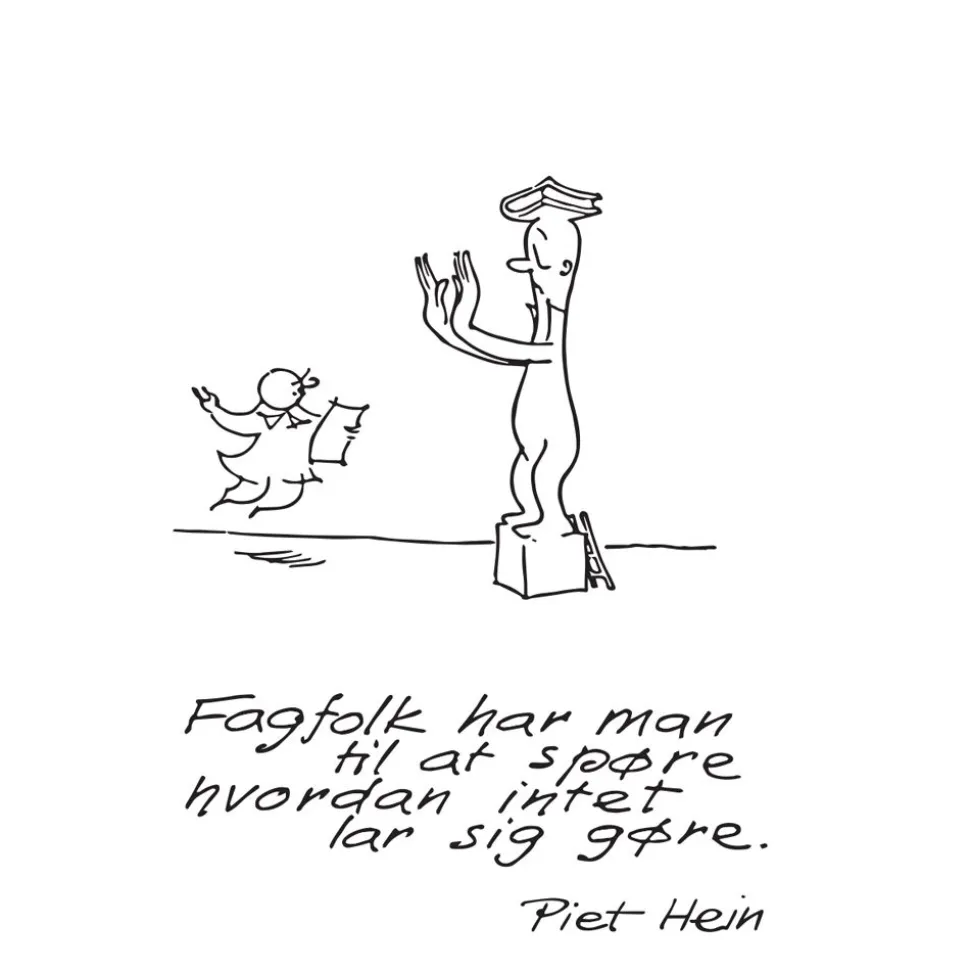 Fagfolk har man
til at spøre
hvordan intet
lar sig gøre.
Piet Hein